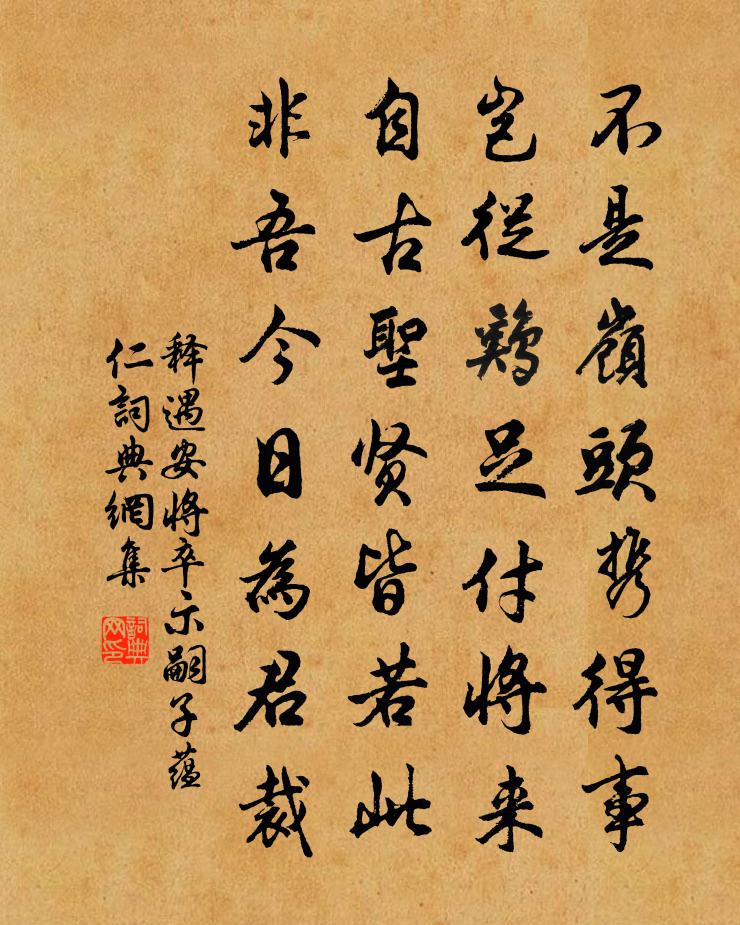 不是嶺頭携得事
豈從鷄足付將来
自古聖贤皆若此
非吾今日為君裁
释遇安将卒示嗣子蕴
仁詞典網集
詞典网印